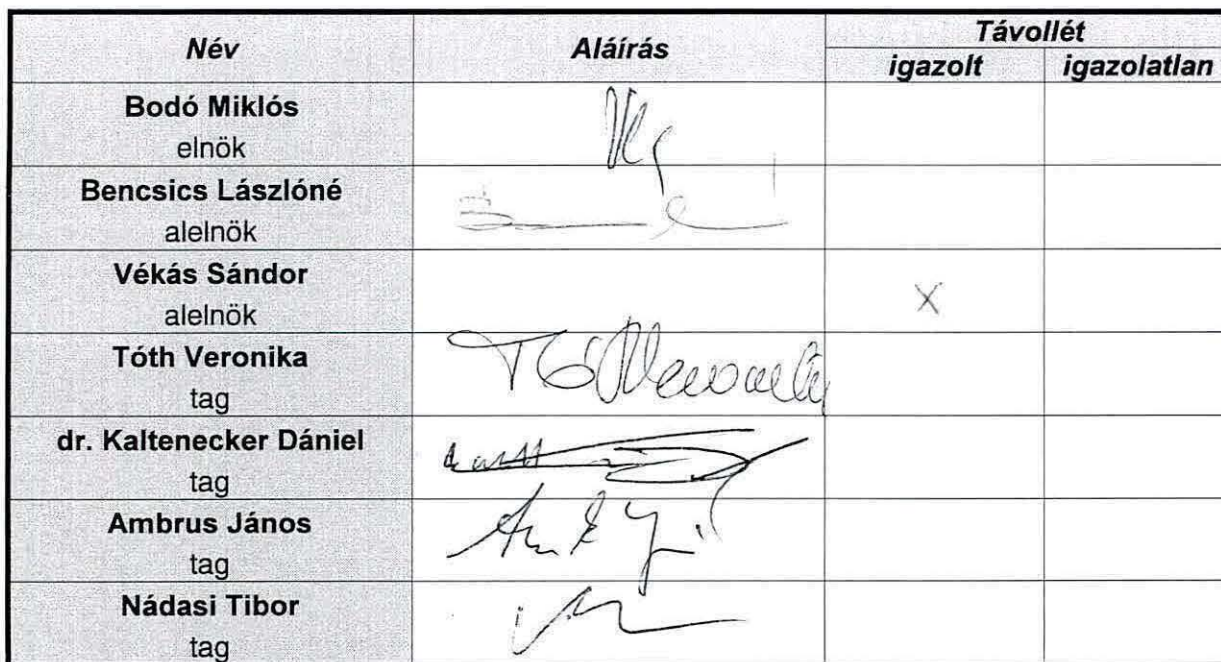 Név Aláírás Távollét
igazolt igazolatlan
Bodó Miklós
elnök
Bencsics Lászlóné
alelnök
Vékás Sándor
alelnök X
Tóth Veronika
Tóth Veronika
tag
dr. Kaltenecker Dániel
tag
Ambrus János
tag
Nádasi Tibor
tag